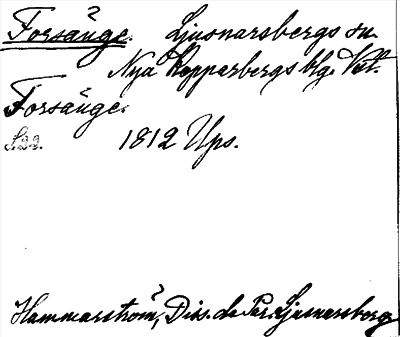 Forsänge. Ljusnarsbergs sn
Nya Kopparbergs blg. Vstm.
Forsänge.
S. 22. 1812 Ups.
Hammarström, Diss. de Par. Ljusnarsberg